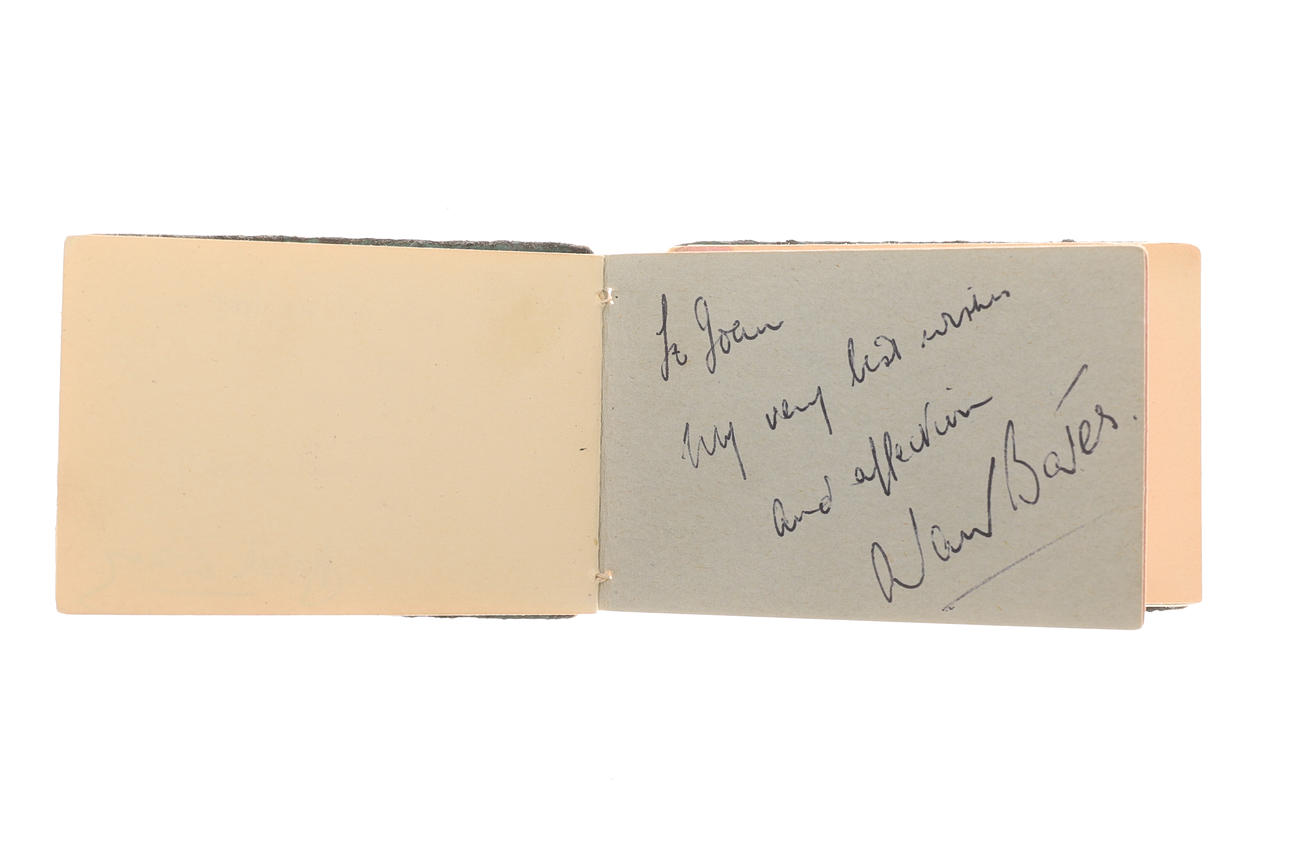 To Joan
My very best wishes
and affection
Alan Bates.